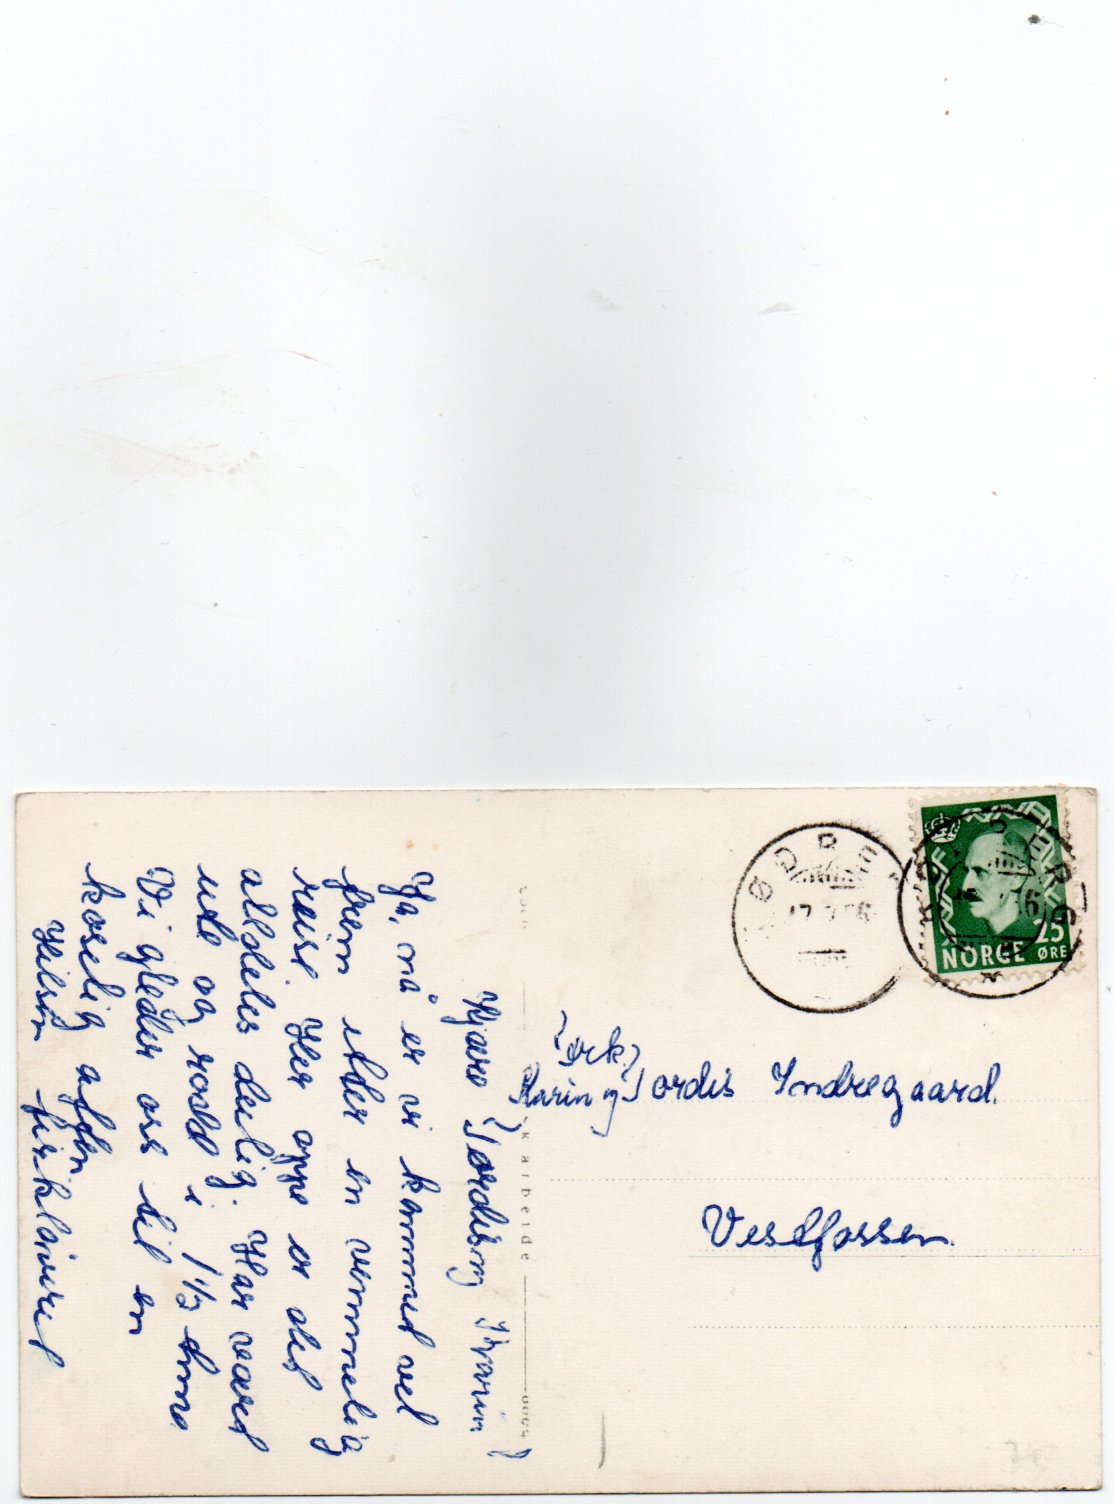 Kjære Jordis og Karin!
Ja, nå er vi kommet vel
frem etter en vemmelig
reise. Her oppe er det
alldeles deilig. Har vært
ute og rodd i 1½ time
Vi gleder oss til en
koselig aften.
Hilsen firkløveret
Frk.
Karin og Jordis Indregaard.
Vestfossen.
NORGE 25 ØRE
RØDBERG
17.7.56
RØDBERG
k arbeide